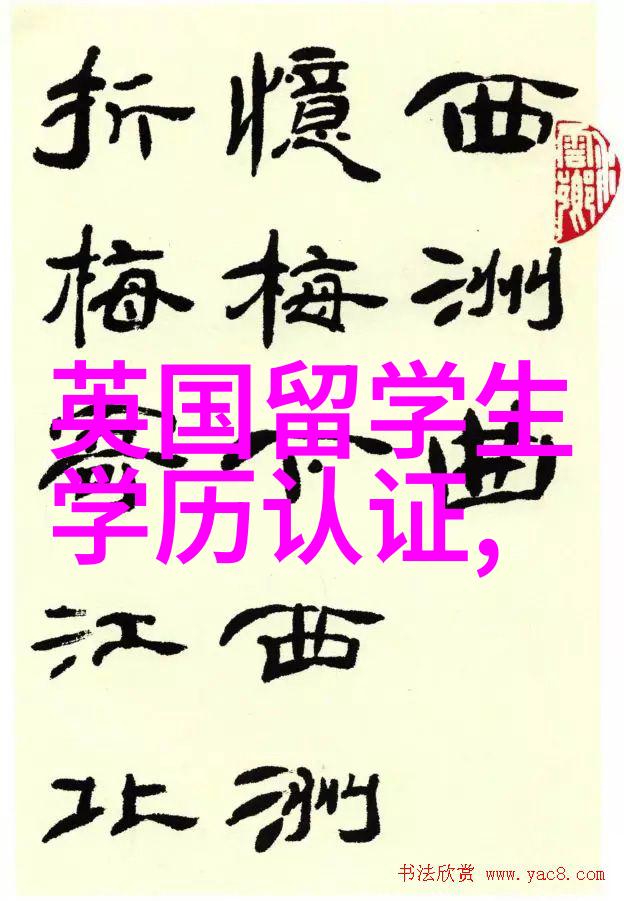 西洲曲
憶梅下西洲
折梅寄江北
英国留学生
学历认证,
书法欣赏 www.yac8.com